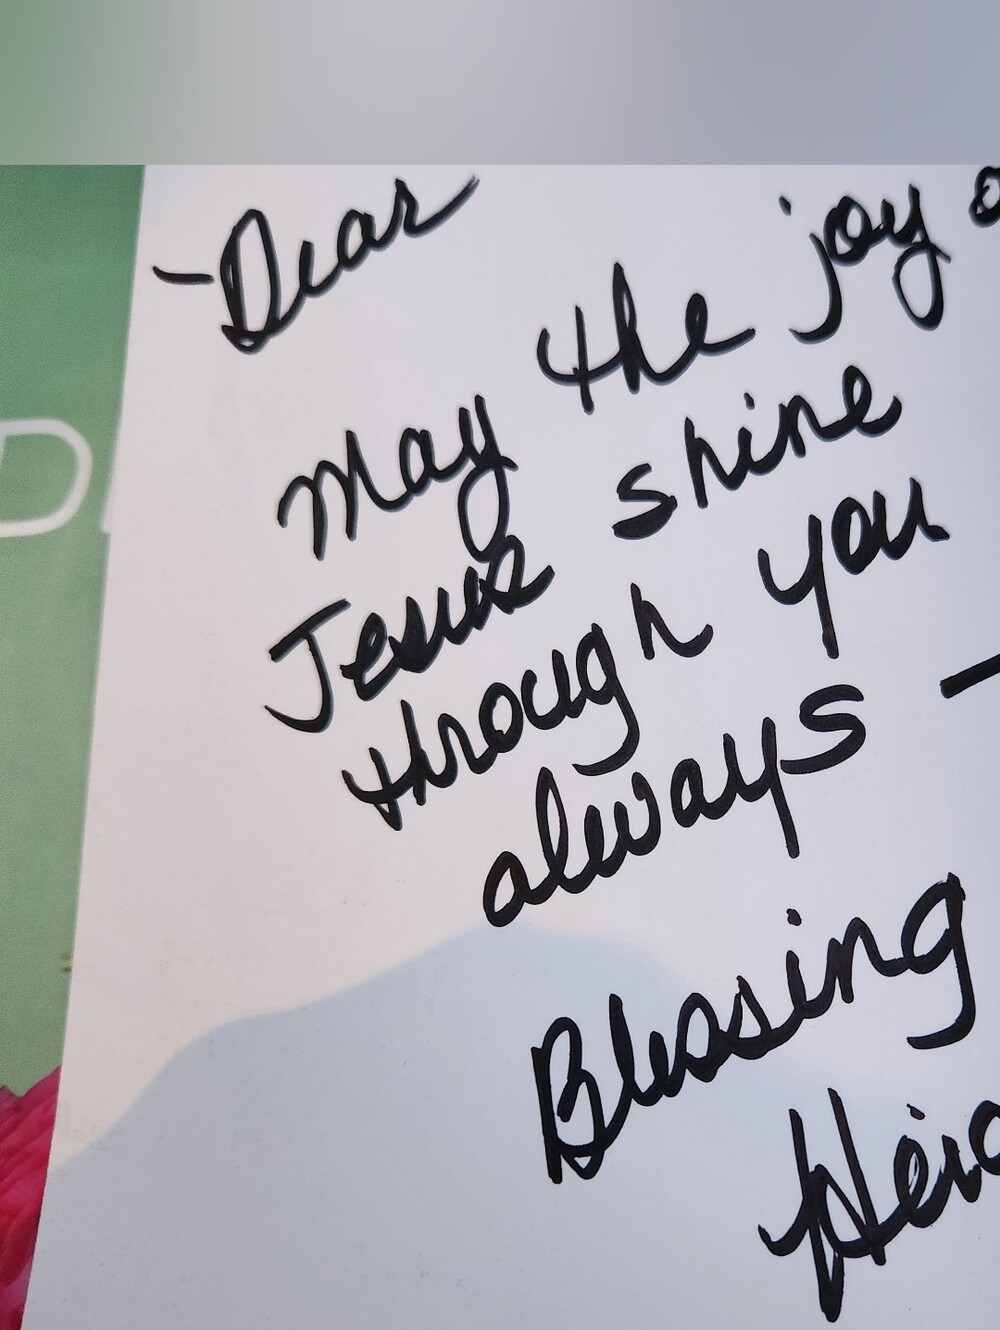 Dear
May the joy o
Jesus shine
through you
always —
Blessing
Heid
D